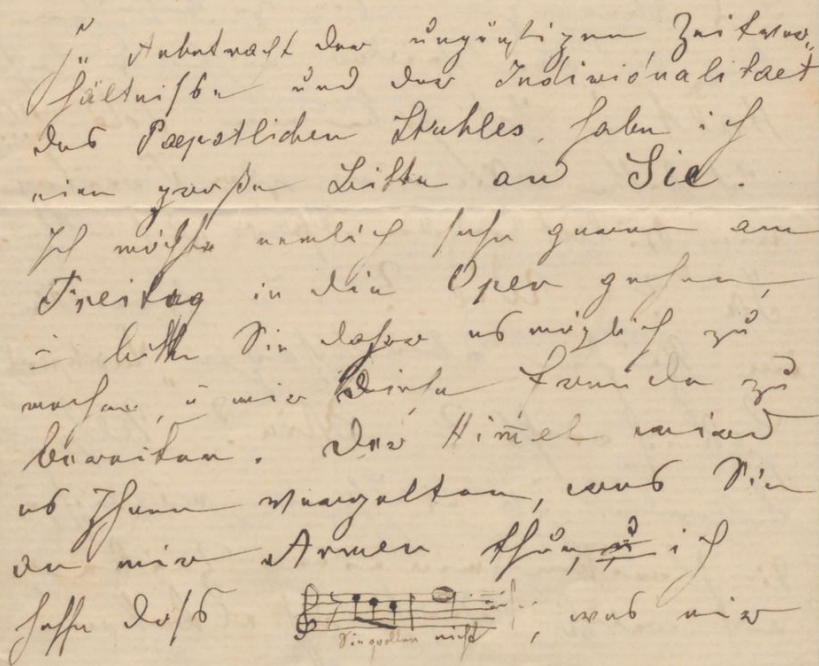 In Anbetracht der ungünstigen Zeitver-
hältnisse und der Individualitaet
des Paepstlichen Stuhles, habe ich
eine große Bitte an Sie.
Ich möchte nemlich sehr gerne am
Freitag in die Oper gehen,
bitte Sie daher es möglich zu
machen, u mir diese Freude zu
bereiten. Der Himel wird
es Ihnen vergelten, was Sie
an mir Armen thun, ich
hoffe dass
Sie wollen nicht
, was mir